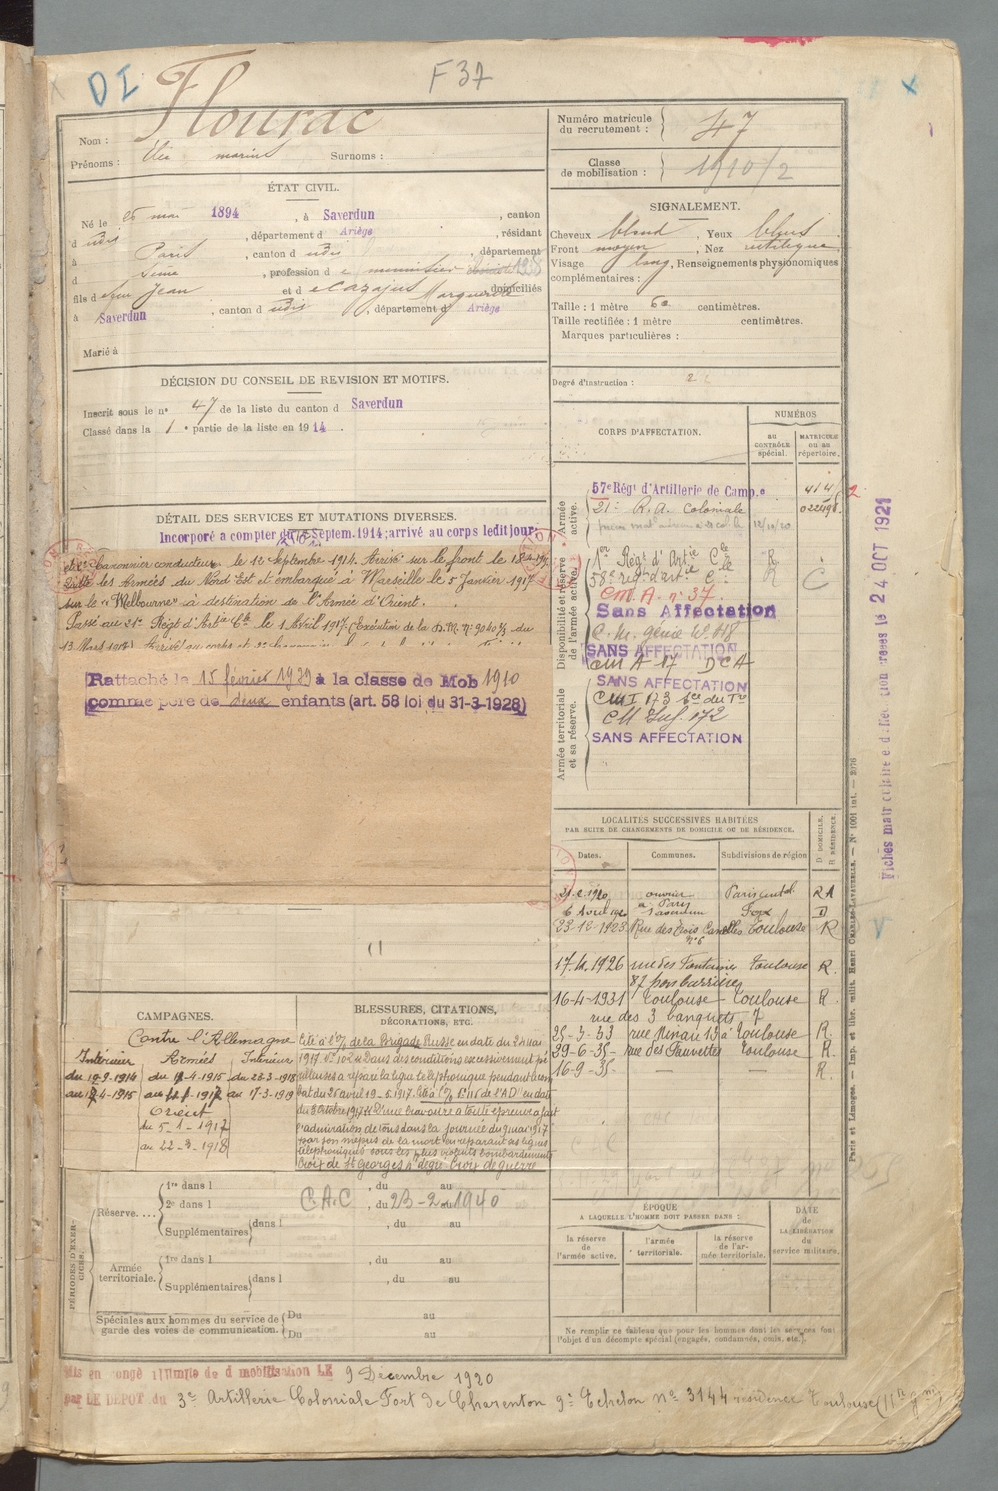 DI
F 37
Flourac
Nom :
Prénoms : Elie marius Surnoms :
Numéro matricule du recrutement : 47
Classe de mobilisation : 1910/2
ÉTAT CIVIL.
Né le 26 mai 1894, à Saverdun, canton
d udis, département d Ariège, résidant
à Paris, canton d udis, département
d Seine, profession d e menuisier
fils d e feu Jean et d e Cazajus Marguerite domiciliés
à Saverdun, canton d udis, département d Ariège
Marié à
SIGNALEMENT.
Cheveux blond, Yeux bleus
Front moyen, Nez rectiligne
Visage long, Renseignements physionomiques
complémentaires :
Taille : 1 mètre 60 centimètres.
Taille rectifiée : 1 mètre centimètres.
Marques particulières :
Degré d'instruction : 2
DÉCISION DU CONSEIL DE REVISION ET MOTIFS.
Inscrit sous le n° 47 de la liste du canton d Saverdun
Classé dans la 1e partie de la liste en 1914.
DÉTAIL DES SERVICES ET MUTATIONS DIVERSES.
Incorporé a compter du Septem. 1914; arrivé au corps ledit jour
et 2e Canonnier conducteur le 12 Septembre 1914. Arrivé sur le front le
Quitte les Armées du Nord Est et embarqué à Marseille le 5 Janvier 1917
sur le "Melbourne" à destination de l'Armée d'Orient.
Passé au 21e Régt d'Artie Cle le 1 Avril 1917. (Exécution de la D.M. n° 9040 3/3 du
13 Mars 1917) Arrivé au corps et 2e canonnier
Rattaché le 15 février 1929 à la classe de Mob 1910
comme père de deux enfants (art. 58 loi du 31-3-1928)
CORPS D'AFFECTATION.
NUMÉROS
au CONTRÔLE spécial.
MATRICULE ou au répertoire.
Armée active.
57e Régt d'Artillerie de Camp.e
21e R.A. Coloniale
12/10/20
Disponibilité et réserve de l'armée active.
1er Régt d'Artie Cle R
58e régt d'artie C. R C
C.M.A. n° 37.
Sans Affectation
C.M. génie N° 418
SANS AFFECTATION
CM A 17 DCA
Armée territoriale et sa réserve.
SANS AFFECTATION
CMI 173 Sce du Tre
CM Inf. 172
SANS AFFECTATION
LOCALITÉS SUCCESSIVES HABITÉES
PAR SUITE DE CHANGEMENTS DE DOMICILE OU DE RÉSIDENCE.
Dates. Communes. Subdivisions de région
D DOMICILE, R RÉSIDENCE.
21-2-1920 ouvrier à Paris Paris cental RA
6 Avril 1920 Saverdun Foix D
23-12-1923 Rue des Trois Canelles n° 6 Toulouse R
17-11-1926 rue des Fontaines Toulouse R.
87 pon
16-4-1931 Toulouse - Toulouse R.
rue des 3 banquets 7
25-3-33 rue Renan 13 à Toulouse R.
29-6-35- rue des Fauvettes Toulouse R.
16-9-35- — — R.
CAMPAGNES.
Contre l'Allemagne
Intérieur Armées Intérieur
du 10-9-1914 du 12-4-1915 du 23-3-1918
au 12-4-1915 au 4-1-1917 au 17-3-1919
Orient
du 5-1-1917
au 22-3-1918
BLESSURES, CITATIONS,
DÉCORATIONS, ETC.
Cité à l'O/ de la Brigade Russe en date du 24 mai
1917. N° 102 "Dans des conditions excessivement pé
rilleuses a réparé la ligne téléphonique pendant le com
bat du 25 avril 19-5-1917. Cité à l'O/ N° 116 de l'AD en date
du 8 Octobre 1917 "D'une bravoure à toute épreuve a fait
l'admiration de tous dans la journée du 9 mai 1917
par son mépris de la mort en réparant les lignes
téléphoniques sous les plus violents bombardements
Croix de St Georges 4e degré Croix de guerre
PÉRIODES D'EXERCICES.
Réserve....
1re dans l , du au
2e dans l C.A.C , du 23-2 au 1940
Supplémentaires dans l , du au
Armée territoriale.
1re dans l , du au
Supplémentaires dans l , du au
Spéciales aux hommes du service de garde des voies de communication.
Du au
Du au
ÉPOQUE
A LAQUELLE L'HOMME DOIT PASSER DANS :
la réserve de l'armée active.
l'armée territoriale.
la réserve de l'armée territoriale.
DATE de LA LIBÉRATION du service militaire.
Ne remplir ce tableau que pour les hommes dont les services font
l'objet d'un décompte spécial (engagés, condamnés, omis, etc.).
Mis en congé illimité de démobilisation LE 9 Décembre 1920
par LE DEPOT du 3e Artillerie Coloniale Fort de Charenton 9e Echelon n° 3144 résidence Toulouse
Paris et Limoges. — Imp. et libr. milit. Henri CHARLES-LAVAUZELLE. — N° 1001 int. — 2076
Fiches matriculaire et d'affection créées le 24 OCT 1921